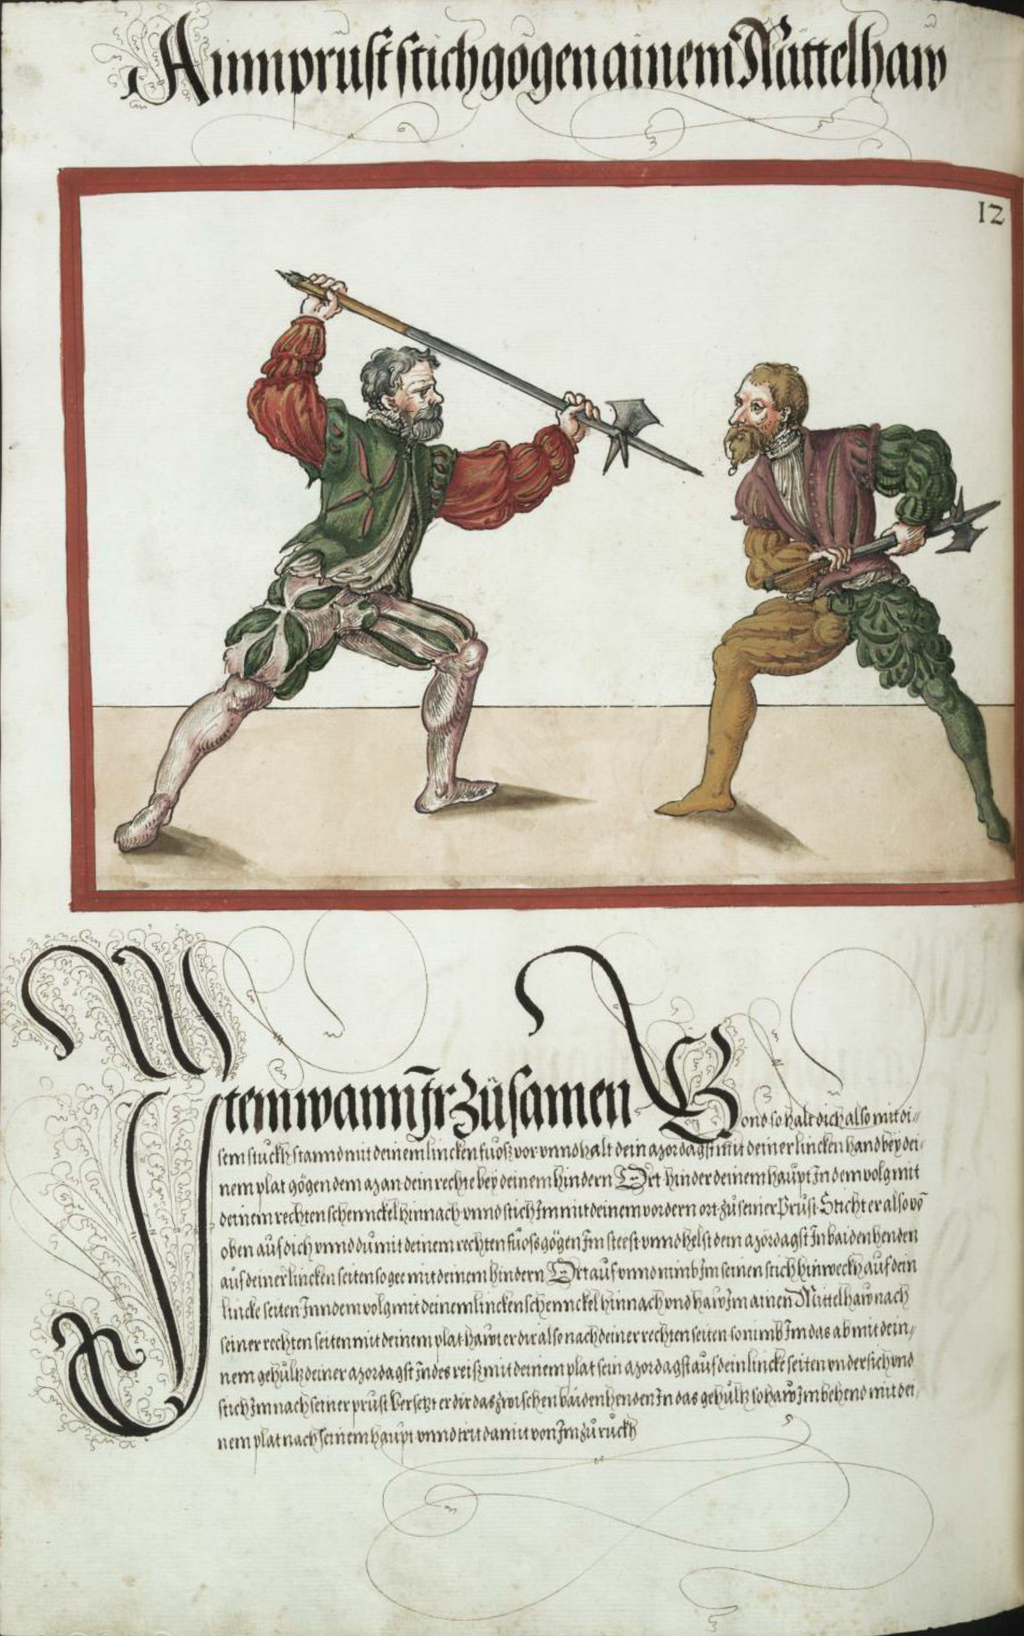 Ainn prust stich gögen ainem Mittelhaw
12
Item wann Jr zůsamen Gond so halt dich also mit di-
sem stuckh stannd mit deinem lincken fuosz vor vnnd halt dein mordagst mit deiner lincken hand bey dei-
nem plat gögen dem man dein rechte bey deinem hindern Ort hinder deinem haupt In dem volg mit
deinem rechten schennckel hinnach vnnd stich Im mit deinem vordern ort zů seiner Prust Sticht er also vō
oben auf dich vnnd du mit deinem rechten fuos gögen Im steest vnnd helst dein mordagst In baiden henden
auf deiner lincken seiten so gee mit deinem hindern Ort auf vnnd nimb Im seinen stich hinweckh auf dein
lincke seiten Inn dem volg mit deinem lincken schennckel hinnach vnd haw Im ainen Mittelhaw nach
seiner rechten seiten mit deinem plat hawt er dir also nach deiner rechten seiten so nimb Im das ab mit dein-
nem gehültz deiner mordagst Indes reisz mit deinem plat sein mordagst auf dein lincke seiten vndersich vnd
stich Im nach seiner prust Versetzt er dir das zwischen baiden henden In das gehültz so haw Im behend mit dei-
nem plat nach seinem haupt vnnd trit damit von Im zů ruckh